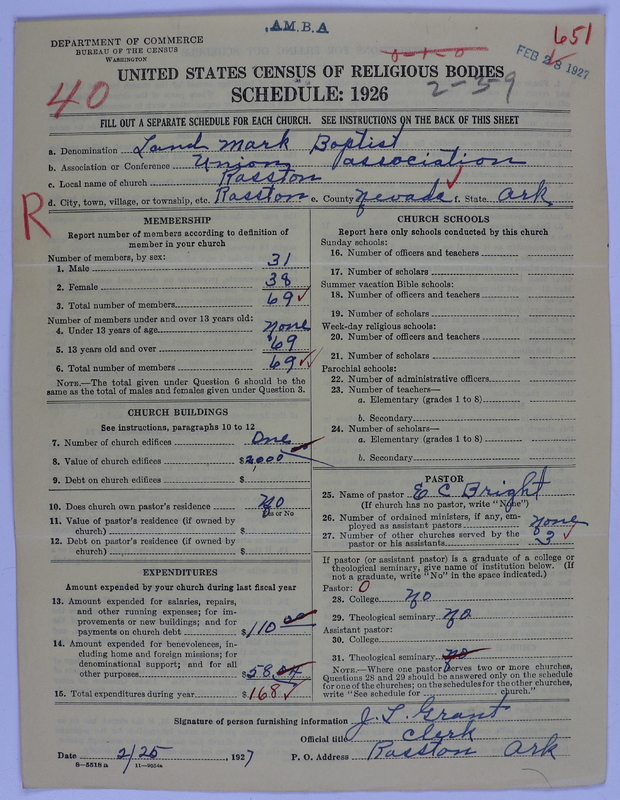 A.M.B.A
DEPARTMENT OF COMMERCE
BUREAU OF THE CENSUS
WASHINGTON
651
FEB 28 1927
40
2-3-9
UNITED STATES CENSUS OF RELIGIOUS BODIES
SCHEDULE: 1926
FILL OUT A SEPARATE SCHEDULE FOR EACH CHURCH. SEE INSTRUCTIONS ON THE BACK OF THIS SHEET
a. Denomination Land Mark Baptist
b. Association or Conference Union association
c. Local name of church Rosston
d. City, town, village, or township, etc. Rosston e. County Nevada f. State Ark
R
MEMBERSHIP
Report number of members according to definition of
member in your church
Number of members, by sex:
1. Male 31
2. Female 38
3. Total number of members 69
Number of members under and over 13 years old:
4. Under 13 years of age none
5. 13 years old and over 69
6. Total number of members 69
NOTE.—The total given under Question 6 should be the
same as the total of males and females given under Question 3.
CHURCH BUILDINGS
See instructions, paragraphs 10 to 12
7. Number of church edifices One
8. Value of church edifices $2,000
9. Debt on church edifices $
10. Does church own pastor's residence No
Yes or No
11. Value of pastor's residence (if owned by
church) $
12. Debt on pastor's residence (if owned by
church) $
EXPENDITURES
Amount expended by your church during last fiscal year
13. Amount expended for salaries, repairs,
and other running expenses; for im-
provements or new buildings; and for
payments on church debt $110 00
14. Amount expended for benevolences, in-
cluding home and foreign missions; for
denominational support; and for all
other purposes $58.04
15. Total expenditures during year $168
CHURCH SCHOOLS
Report here only schools conducted by this church
Sunday schools:
16. Number of officers and teachers
17. Number of scholars
Summer vacation Bible schools:
18. Number of officers and teachers
19. Number of scholars
Week-day religious schools:
20. Number of officers and teachers
21. Number of scholars
Parochial schools:
22. Number of administrative officers
23. Number of teachers—
a. Elementary (grades 1 to 8)
b. Secondary
24. Number of scholars—
a. Elementary (grades 1 to 8)
b. Secondary
PASTOR
25. Name of pastor E C Bright
(If church has no pastor, write "None")
26. Number of ordained ministers, if any, em-
ployed as assistant pastors none
27. Number of other churches served by the
pastor or his assistants 3
If pastor (or assistant pastor) is a graduate of a college or
theological seminary, give name of institution below. (If
not a graduate, write "No" in the space indicated.)
Pastor: 0
28. College no
29. Theological seminary no
Assistant pastor:
30. College
31. Theological seminary no
NOTE.—Where one pastor serves two or more churches,
Questions 28 and 29 should be answered only on the schedule
for one of the churches; on the schedules for the other churches,
write "See schedule for church."
Signature of person furnishing information J. L. Grant
Official title Clerk
Date 2/25, 1927 P. O. Address Rosston Ark
8-5518 a 11-9054a